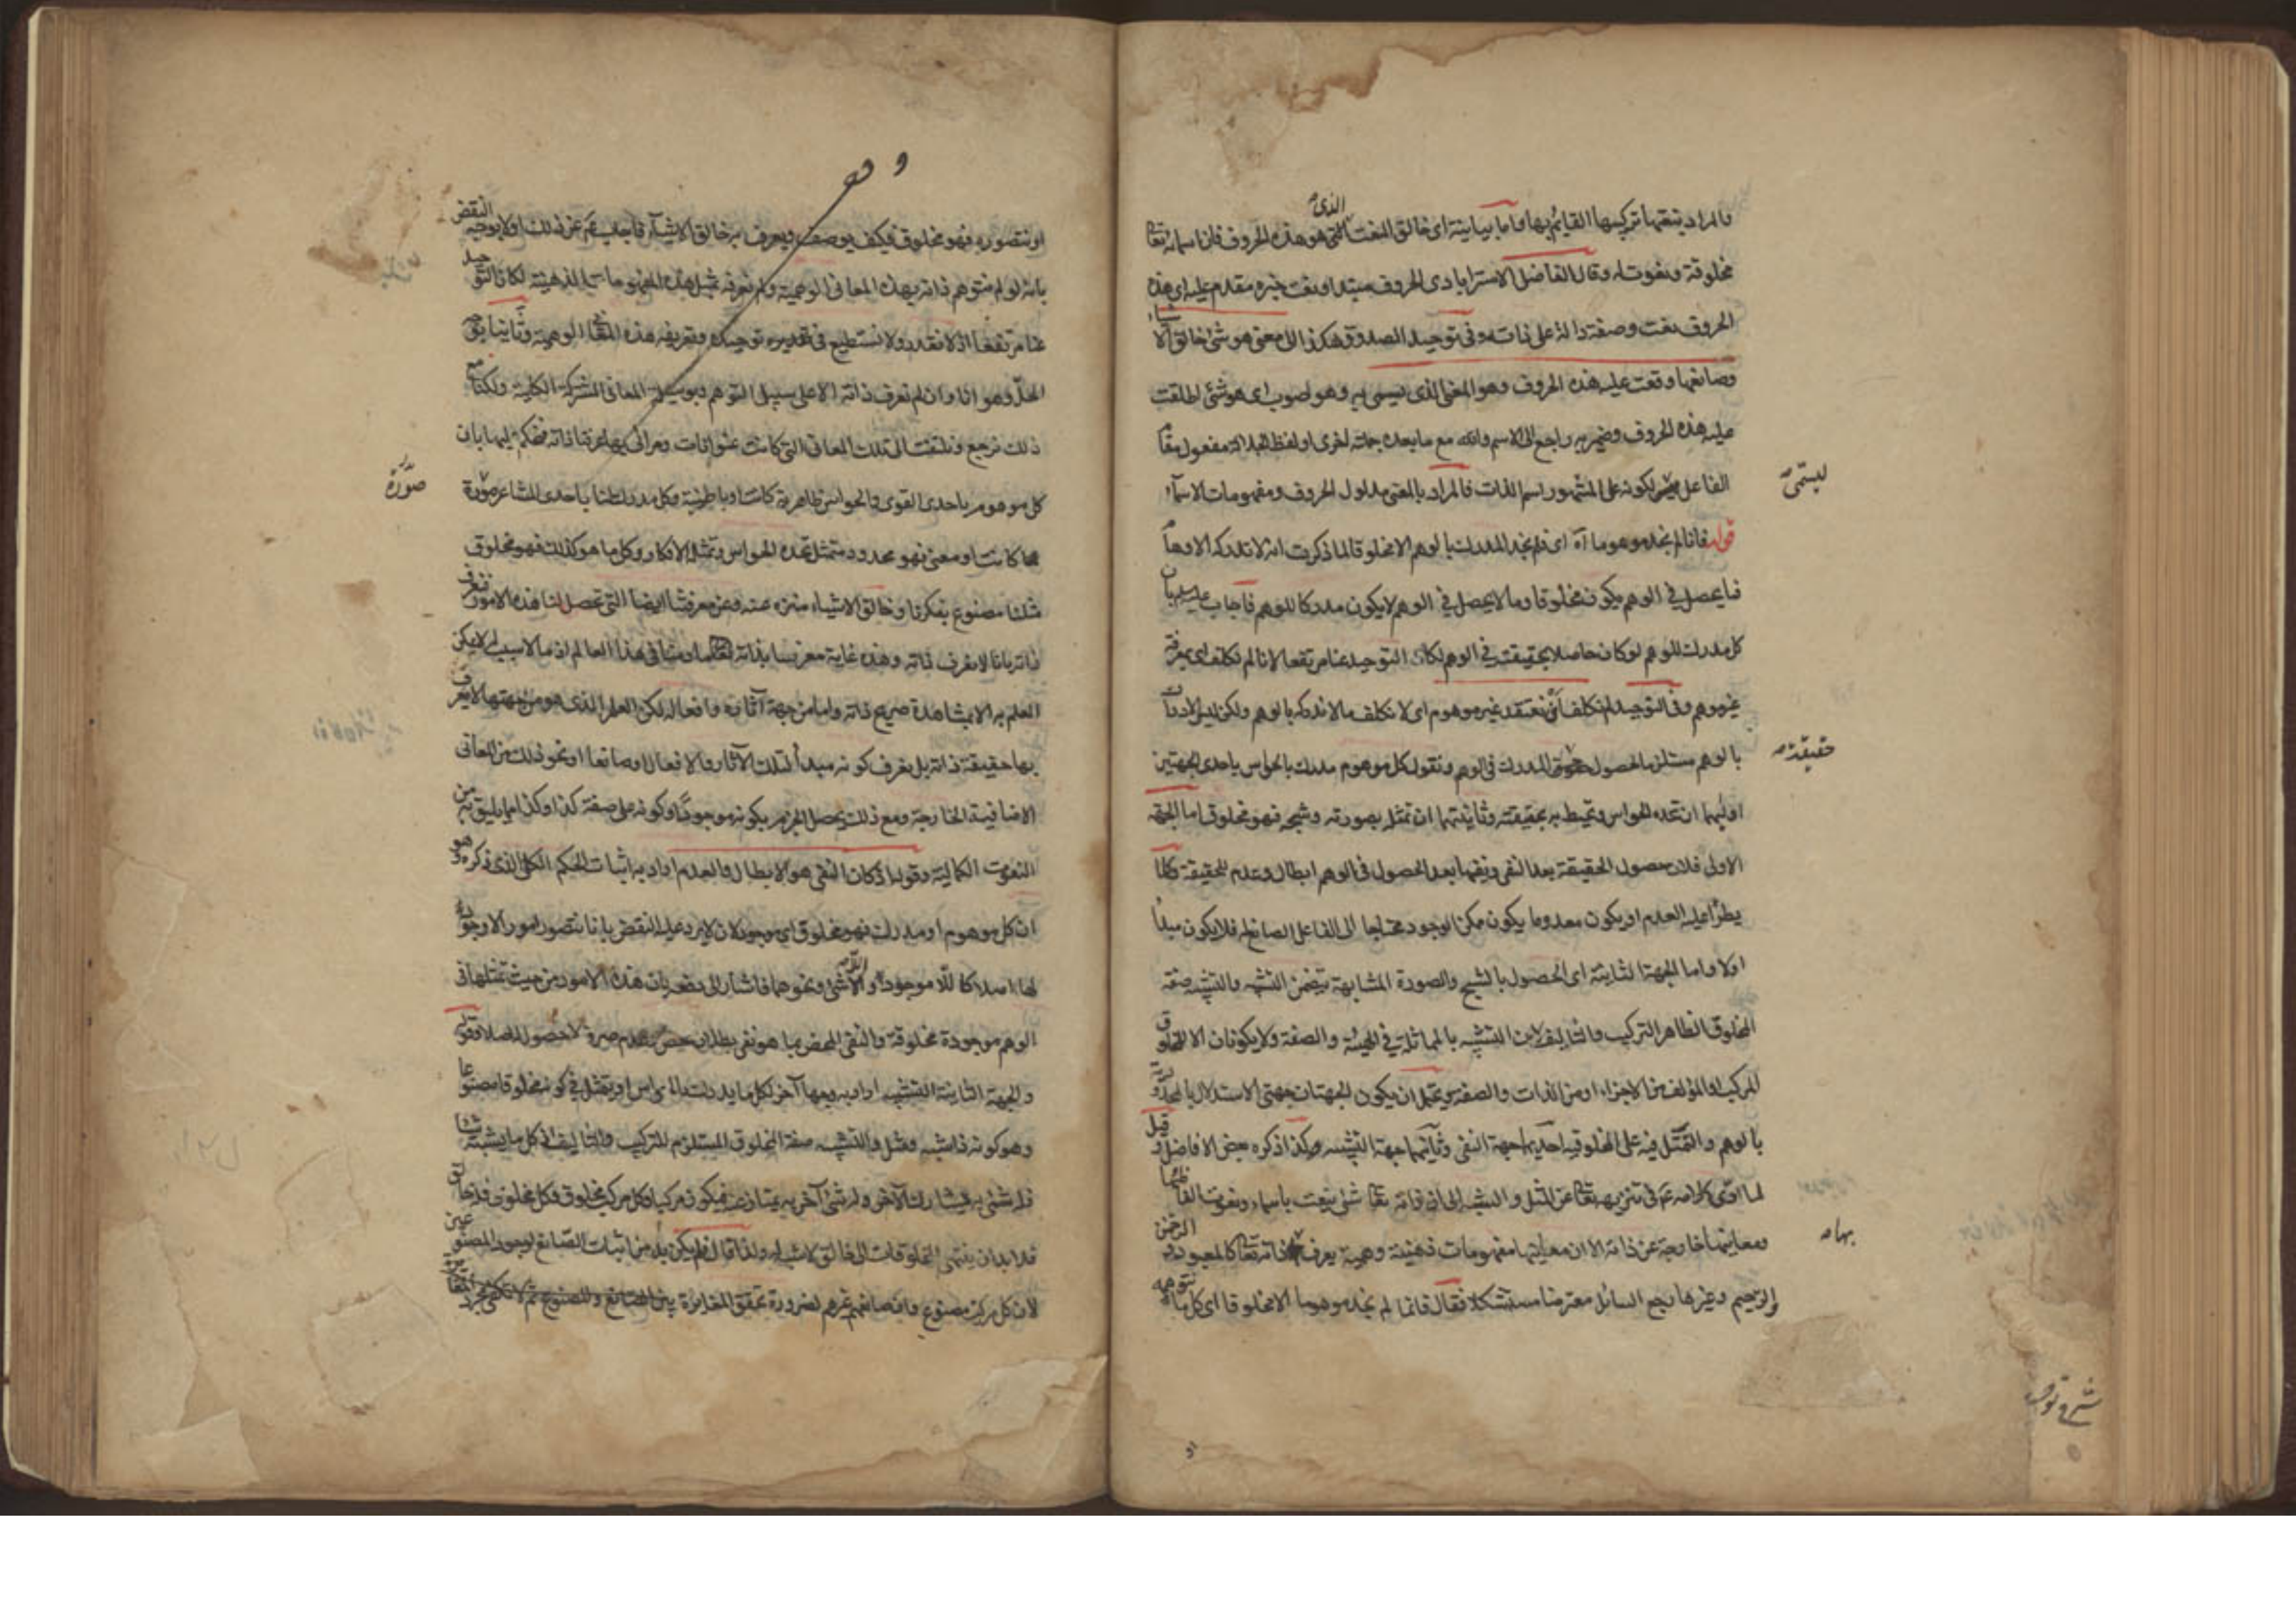 فالمراد بنعتها تركيبها القايم بها واما بيانية اى خالق النعت الذى هو هذه الحروف فان اسمائه تعا
مخلوقة ونعوت له وقال الفاضل الاسترابادى الحروف مبتدا ونعت خبره مقدم عليه اى هذه
الحروف نعت وصفة دالة على ذاته وفى توحيد الصدوق هكذا الى معنى هو شئ خالق الاشياء
وصانعها وقعت عليه هذه الحروف وهو المعنى الذى يسمى به وهو اصوب اى هو شئ اطلقت
عليه هذه الحروف وضمير به راجع الى الاسم والله مع ما بعده جملة اخرى او لفظ الجلالة مفعول مقام
الفاعل لكونه على المشهور اسم الذات فالمراد بالمعنى مدلول الحروف ومفهومات الاسماء
ليسمى
قوله فانا لم نجد موهوما آه اى فلم نجد المدرك بالوهم الا مخلوقا لما ذكرت انه لا تدركه الاوهام
فما يحصل فى الوهم يكون مخلوقا وما لا يحصل فى الوهم لا يكون مدركا للوهم فاجاب عليه بان
كل مدرك للوهم لو كان حاصلا بحقيقته فى الوهم لكان التوحيد عنا مرتفعا لانا لم نكلف اى بمعرفة
غير موهوم وفى التوحيد لم نكلف ان نعتقد غير موهوم اى لا نكلف ما لا ندركه بالوهم ولكن ليس الادراك
بالوهم مستلزما لحصول المدرك فى الوهم ونقول كل موهوم مدرك بالحواس باحدى الجهتين
حقيقة
اوليهما ان تحده الحواس وتحيط به بحقيقته وثانيتهما ان تمثله بصورته وشبحه فهو مخلوق اما الجهة
الاولى فلان حصول الحقيقة بعد النفى ونفيها بعد الحصول فى الوهم ابطال وعدم للحقيقة وكلما
يطرأ عليه العدم او يكون معدوما يكون ممكن الوجود محتاجا الى الفاعل الصانع له فلا يكون مبدأ
اولا واما الجهة الثانية اى الحصول بالشبح والصورة المشابهة يتضمن التشبيه والتشبيه صفة
المخلوق الظاهر التركيب والتاليف لان التشبيه بالمماثلة فى الهيئة والصفة ولا يكونان الا للمخلوق
المركب او المؤلف من الاجزاء او من الذات والصفة ويحتمل ان يكون الجهتان جهتى الاستدلال بالمحدودية
بالوهم والتمثل فيه على المخلوقية احديهما جهة النفى وثانيتهما جهة التشبيه هكذا ذكره بعض الافاضل وقيل
لما ادى كلامه عم فى تنزيهه تعا عن المثل والشبه الى ان ذاته تعا شئ ينعت باسماء ونعوت الفاظها
ومعانيها خارجة عن ذاته الا ان معانيها مفهومات ذهنية وهمية يعرف ذاته تعا كالمعبود والرحمن
بها
والرحيم وغيرها رجع السائل معترضا مستشكلا فقال فانا لم نجد موهوما الا مخلوقا اى كل ما نتوهمه
شرح توحيد
او نتصوره فهو مخلوق فكيف يوصف ويعرف به خالق الاشياء فاجاب عم عن ذلك اولا بوجه النقض
بانه لو لم نتوهم ذاته بهذه المعانى الوهمية ولم نعرفه بمثل هذه المفهومات الذهنية لكان التوحيد
عنا مرتفعا اذ لا نقدر ولا نستطيع فى توحيده وتعريفه هذه المعانى الوهمية وثانيا بوجه
الحل وهو انا وان لم نعرف ذاته الا على سبيل التوهم وبوسيلة المعانى المشتركة الكلية ولكنا مع
ذلك نرجع ونلتفت الى تلك المعانى التى كانت عنوانات ومرائى بها عرفنا ذاته فنحكم عليها بان
كل موهوم باحدى القوى والحواس ظاهرية كانت او باطنية وكل مدرك لنا باحدى المشاعر صورة
صورة
كانت او معنى فهو محدود متمثل تحده الحواس وتمثله الافكار وكل ما هو كذلك فهو مخلوق
مثلنا مصنوع بفكرنا وخالق الاشياء منزه عنه وعن معرفتنا ايضا التى تحصل لنا هذه الامور فنعرف
ذاته بانا لا نعرف ذاته وهذه غاية معرفتنا بذاته فى هذا العالم اذ ما لا سبب له لا يمكن
العلم به الا بمشاهدة صريح ذاته واما من جهة آثاره وافعاله لكن العلم الذى هو من جهتها لا يعرف
بها حقيقة ذاته بل يعرف كونه مبدأ لتلك الآثار والافعال او صانعا او نحو ذلك من المعانى
الاضافية الخارجة ومع ذلك يحصل الجزم بكونه موجودا وكونه على صفة كذا وكذا مما يليق به من
النعوت الكمالية وقوله اذ كان النفى هو الابطال والعدم اراد به اثبات الحكم الكلى الذى ذكره وهو
ان كل موهوم او مدرك فهو مخلوق اى موجود لان لا يرد عليه النقض بانا نتصور امورا لا وجود
لها اصلا كاللا موجود واللاشئ ونحوهما فاشار الى دفعه بان هذه الامور من حيث تمثلها فى
الوهم موجودة مخلوقة والنفى المحض بما هو نفى بطلان محض وعدم صرف لا حصول له اصلا وقوله
والجهة الثانية التشبيه اراد به وجها آخر لكل ما يدرك بالحواس او يتمثل فى كونه مخلوقا مصنوعا
وهو كونه ذا شبه ومثل والتشبيه صفة المخلوق المستلزم للتركيب والتاليف اذ كل ما يشبه شيئا
فله شئ به يشارك الآخر وله شئ آخر به يمتاز عنه فيكون مركبا وكل مركب مخلوق وكل مخلوق فله خالق
فلا بد ان ينتهى المخلوقات الى خالق لا شبه له ولذا قال فلم يكن بد من اثبات الصانع لوجود المصنوعين
لان كل مركب مصنوع وان صانعهم غيرهم لضرورة تحقق المغايرة بين الصانع والمصنوع ثم لا تكفى مجرد المغايرة